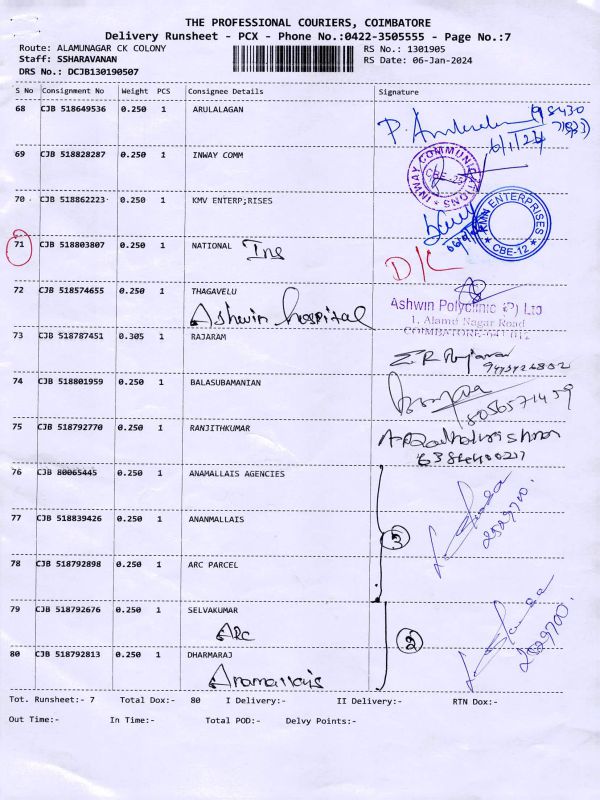 THE PROFESSIONAL COURIERS, COIMBATORE
Delivery Runsheet - PCX - Phone No.:0422-3505555 - Page No.:7
Route: ALAMUNAGAR CK COLONY RS No.: 1301905
Staff: SSHARAVANAN RS Date: 06-Jan-2024
DRS No.: DCJB130190507
S No Consignment No Weight PCS Consignee Details Signature
68 CJB 518649536 0.250 1 ARULALAGAN
69 CJB 518828287 0.250 1 INWAY COMM
INWAY COMMUNICATIONS
70 CJB 518862223 0.250 1 KMV ENTERP;RISES
ENTERPRISES
CBE-12
71 CJB 518803807 0.250 1 NATIONAL Ins D/L
72 CJB 518574655 0.250 1 THAGAVELU
Ashwin hospital
Ashwin Polyclinic (P) Ltd
1, Alamu Nagar Road
COIMBATORE-641 012
73 CJB 518787451 0.305 1 RAJARAM
74 CJB 518801959 0.250 1 BALASUBAMANIAN
8056571459
75 CJB 518792770 0.250 1 RANJITHKUMAR
76 CJB 80065445 0.250 1 ANAMALLAIS AGENCIES
77 CJB 518839426 0.250 1 ANANMALLAIS
3 2529700
78 CJB 518792898 0.250 1 ARC PARCEL
79 CJB 518792676 0.250 1 SELVAKUMAR
ARC 2 2529700
80 CJB 518792813 0.250 1 DHARMARAJ
Anamallais
Tot. Runsheet:- 7 Total Dox:- 80 I Delivery:- II Delivery:- RTN Dox:-
Out Time:- In Time:- Total POD:- Delvy Points:-